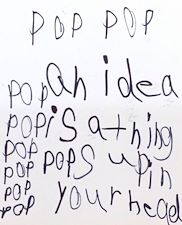 POP POP
POP an idea
POP is a thing
POP POPS up in
POP
POP your head
POP